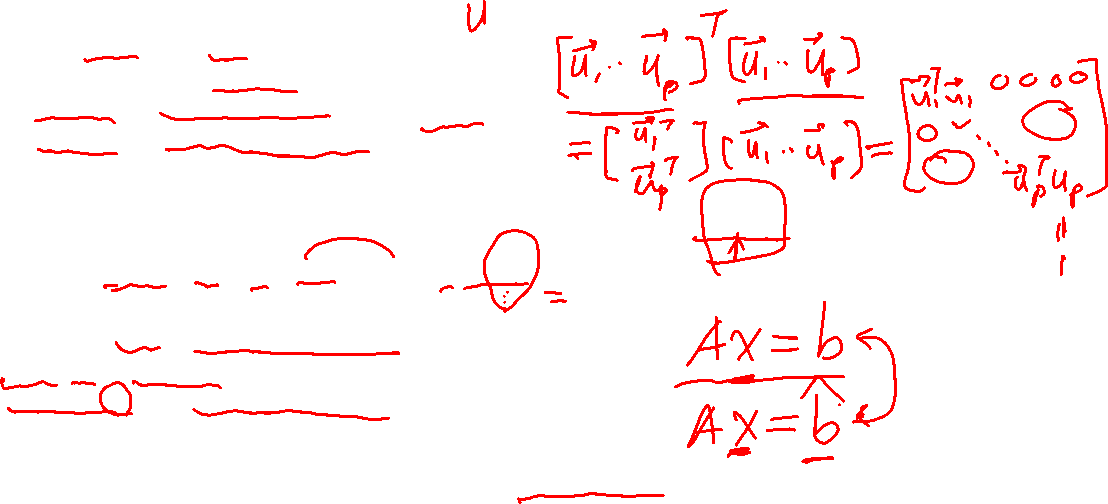 U
[u⃗₁ ·· u⃗ₚ]ᵀ [u⃗₁ ·· u⃗ₚ]
= [u⃗₁ᵀ u⃗ₚᵀ] [u⃗₁ ·· u⃗ₚ] = [u⃗₁ᵀu⃗₁ 0 0 0 0 0 ⋱ u⃗ₚᵀuₚ]
=
Ax = b
Ax = b̂